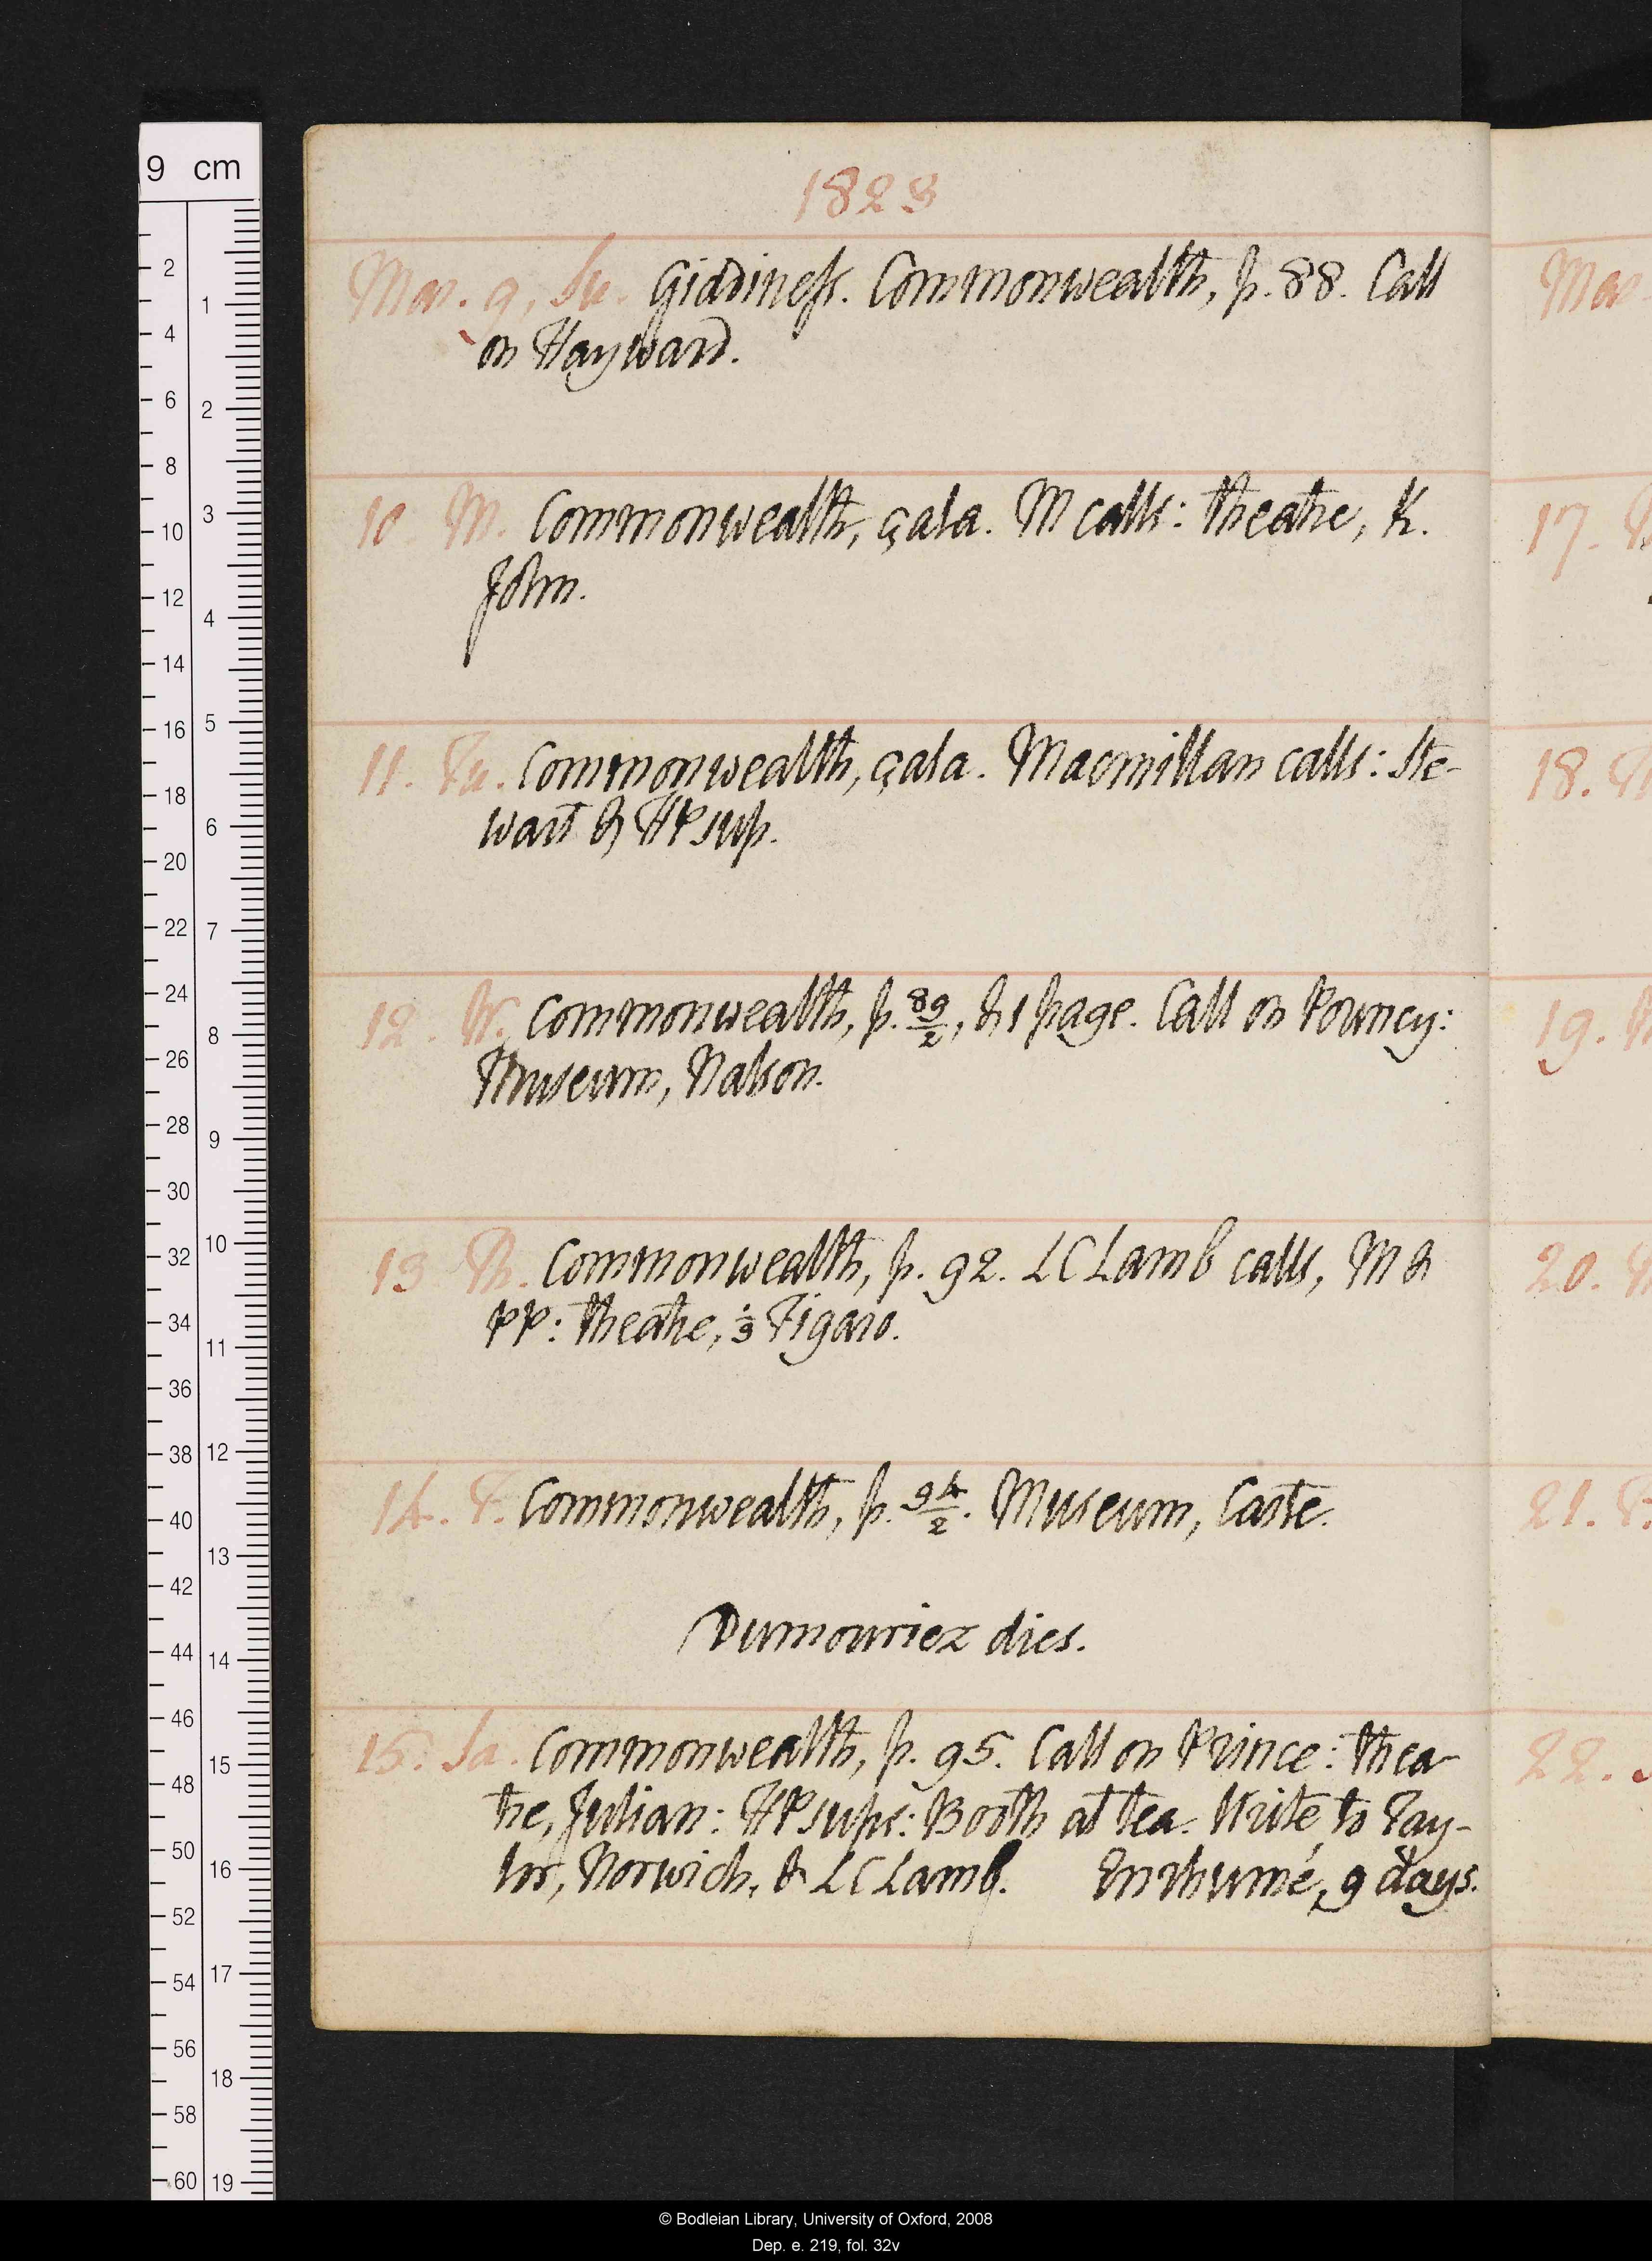 9 cm
1823
Mar. 9, Su. Giddineſs. Commonwealth, p. 88. Call
on Hayward.
10 M. Commonwealth, çala. M calls: theatre, K.
John.
11. Tu. Commonwealth, çala. Macmillan calls: Ste-
wart & HP sup.
12. W. Commonwealth, p. 89/2, & 1 page. Call on Pouncy:
Museum, Nalson.
13 Th. Commonwealth, p. 92. LC Lamb calls, M &
PP: theatre, ⅓ Figaro.
14. F. Commonwealth, p. 94/2. Museum, Carte.
Dumouriez dies.
15. Sa. Commonwealth, p. 95. Call on Prince: thea-
tre, Julian: HP sups: Booth at tea. Write to Tay-
lor, Norwich, & LC Lamb. Enrhumé, 9 days.
Mar
17.
18.
19.
20.
21. F.
22.
© Bodleian Library, University of Oxford, 2008
Dep. e. 219, fol. 32v